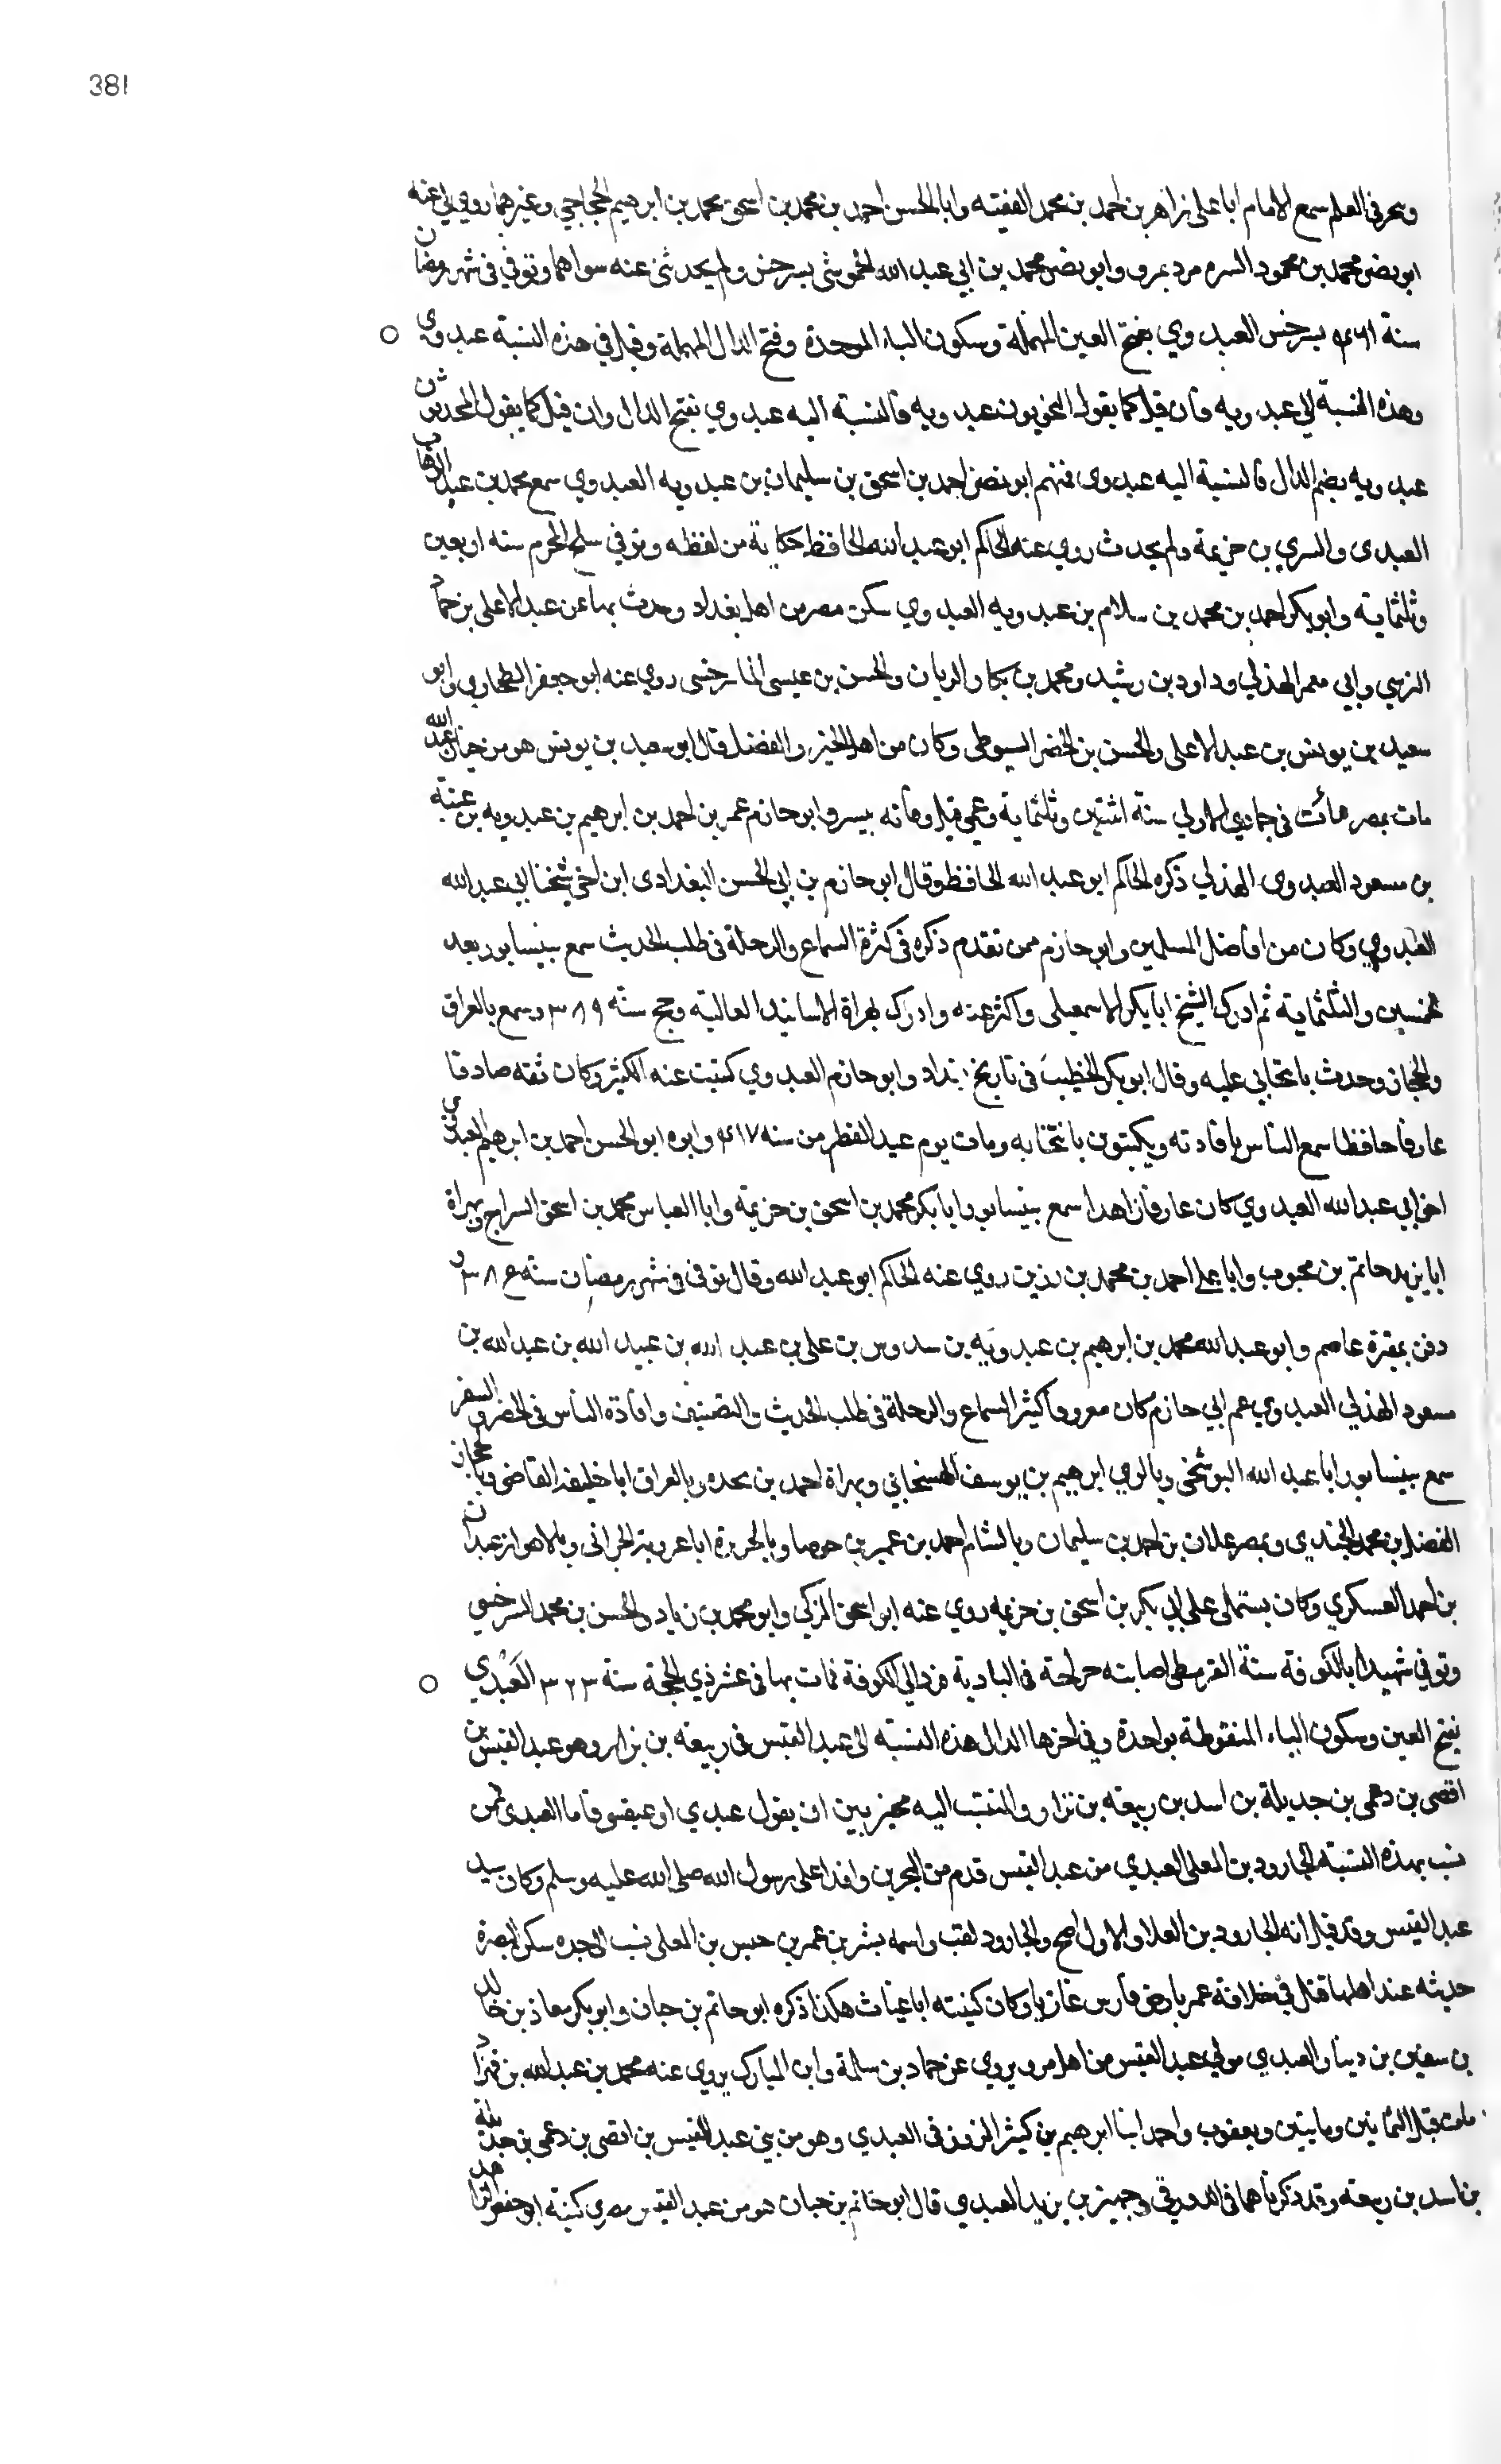 381
وبحر في العلم سمع الامام ابا علي زاهر بن احمد بن محمد الفقيه وابا الحسن احمد بن محمد بن اسحق محمد بن ابرهيم الحجاجي وغيرهما روى لي عنه
ابو نصر محمد بن محمود السره مرد بمرو وابو نصر محمد بن ابي عبد الله الخموشي بسرخس ولم يحدثني عنه سواهما وتوفي في شهر رمضان
سنة بسرخس العبدوي بفتح العين المهملة وسكون الباء الموحدة وفتح الدال المهملة وقيل في هذه النسبة عبدوي
وهذه النسبة الى عبدويه فان قيل كما يقول النحويون عبدويه فالنسبة اليه عبدوي بفتح الدال وان قيل كما يقول المحدثون
عبدويه بضم الدال فالنسبة اليه عبدوي فمنهم ابو نصر احمد بن اسحق بن سليمان بن عبدويه العبدوي سمع محمد بن عبد الوهاب
العبدى والسري بن خزيمة ولم يحدث روى عنه الحاكم ابو عبد الله الحافظ حكاية من لفظه وتوفي سلخ المحرم سنه اربعين
وثلثماية وابو بكر احمد بن محمد بن سلام بن عبدويه العبدوي سكن مصر من اهل بغداد وحدث بها عن عبد الاعلى بن حماد
النرسي وابي معمر الهذلي وداود بن رشيد ومحمد بن بكار الريان والحسن بن عيسى الماسرخسى روى عنه ابو جعفر الطحاوي وابو
سعيد بن يونس بن عبد الاعلى والحسن بن الخضر السيوطي وكان من اهل الخير والفضل قال ابو سعيد بن يونس هو من خيار عبد الله
مات بمصر في جمادي الاولى سنة اثنتين وثلثماية وعمي قبل وفاته بيسير وابو حازم عمر بن احمد بن ابرهيم بن عبدويه بن عتبة
بن مسعود العبدوي الهذلي ذكره الحاكم ابو عبد الله الحافظ وقال ابو حازم بن ابي الحسن البغدادى ابن اخي شيخنا ابي عبد الله
العبدوي وكان من افاضل المسلمين وابو حازم ممن تقدم ذكره في كثرة السماع والرحلة في طلب الحديث سمع بنيسابور بعد
الخمسين والثلثماية ثم ادرك الشيخ ابا بكر الاسمعيلى واكثر عنه وادرك بهراة الاسانيد العالية وحج سنة ٣٨٩ وسمع بالعراق
والحجاز وحدث بانتخابي عليه وقال ابو بكر الخطيب في تاريخ بغداد وابو حازم العبدوي كتبت عنه الكثير وكان ثقه صادقا
عارفا حافظا سمع الناس بافادته ويكتبون بانتخابه ومات يوم عيد الفطر من سنه ٤١٧ وابوه ابو الحسن احمد بن ابرهيم العبدوي
اخي ابي عبد الله العبدوي كان عارفا زاهدا سمع بنيسابور ابا بكر محمد بن اسحق بن خزيمة وابا العباس محمد بن اسحق السراج وبهراة
ابا يزيد حاتم بن محبوب وابا علي احمد بن محمد بن رزين روى عنه الحاكم ابو عبد الله وقال توفي في شهر رمضان سنه و
دفن بمقبرة عاصم وابو عبد الله محمد بن ابرهيم بن عبدويه بن سدوس بن علي بن عبد الله بن عبيد الله بن عبد الله بن
مسعود الهذلي العبدوي عم ابي حازم كان معروفا كثير السماع والرحلة في طلب الحديث والتصنيف وافادة الناس في الحضر والسفر
سمع بنيسابور ابا عبد الله البوشنجي وبالري ابرهيم بن يوسف الهسنجاني وبهراة احمد بن نجده وبالعراق ابا خليفه القاضي وبالحجاز
المفضل بن محمد الجندي وبمصر علان بن احمد بن سليمان وبالشام احمد بن عمير بن جوصا وبالجزيرة ابا عروبة الحراني وبالاهواز عبدان
بن احمد العسكري وكان يستملى على ابي بكر بن اسحق بن خزيمه روى عنه ابو اسحق المزكي وابو محمد بن زياد والحسن بن محمد السرخسي
وتوفي شهيدا بالكوفة سنة القرمطي اصابته جراحة في البادية فرد الى الكوفة فمات بها في عشر ذي الحجة سنة ٣٢٣ العبدي
بفتح العين وسكون الباء المنقوطة بواحدة وفي اخرها الدال هذه النسبه الى عبد القيس في ربيعه بن نزار وهو عبد القيس بن
افصى بن دعمى بن جديلة بن اسد بن ربيعه بن نزار والمنتسب اليه مخير بين ان يقول عبدي او عبقسي فاما العبدى فمن
نسب بهذه النسبة الجارود بن المعلى العبدي من عبد القيس قدم من البحرين وافدا على رسول الله صلى الله عليه وسلم وكان سيد
عبد القيس وقد قيل انه الجارود بن العلا والاول اصح والجارود لقب واسمه بشر بن عمر بن حبيش بن المعلى نسب الى جده سكن البصرة
حديثه عند اهلها قتل في خلافة عمر بارض فارس غازيا وكان كنيته ابا عياث هكذا ذكره ابو حاتم بن حبان وابو بكر معاذ بن خالد
بن سفين بن دينار العبدي مولى عبد القيس من اهل مرو يروي عن حماد بن سلمة وابن المبارك يروي عنه محمد بن عبد الله بن قهزاد
مات قبل الثمانين ومايتين ويعقوب واحمد ابنا ابرهيم بن كثير الدورقي العبدي وهو من بني عبد القيس بن افصى بن دعمى بن جديلة
بن اسد بن ربيعه وقد ذكرناهما في الدورقي وجهير بن يزيد العبدي قال ابو حاتم بن حبان هو من عبد القيس بصري كنيته ابو حفص